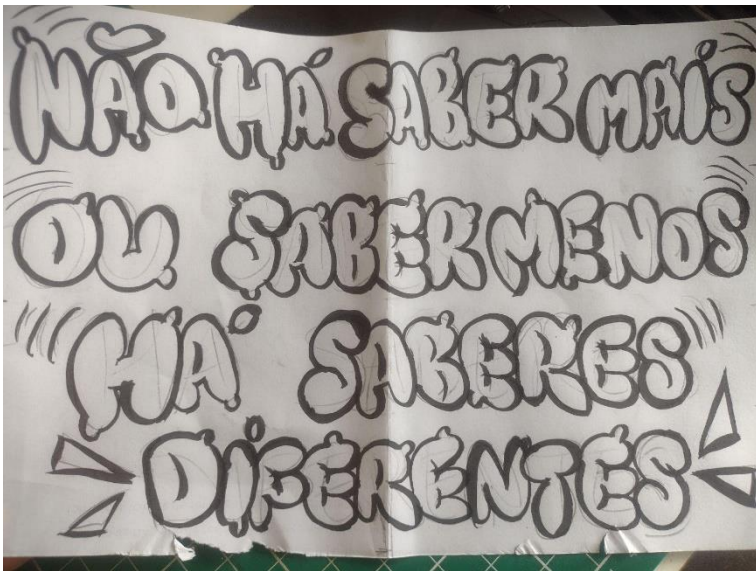 NÃO HÁ SABER MAIS
OU SABER MENOS
HÁ SABERES
DIFERENTES